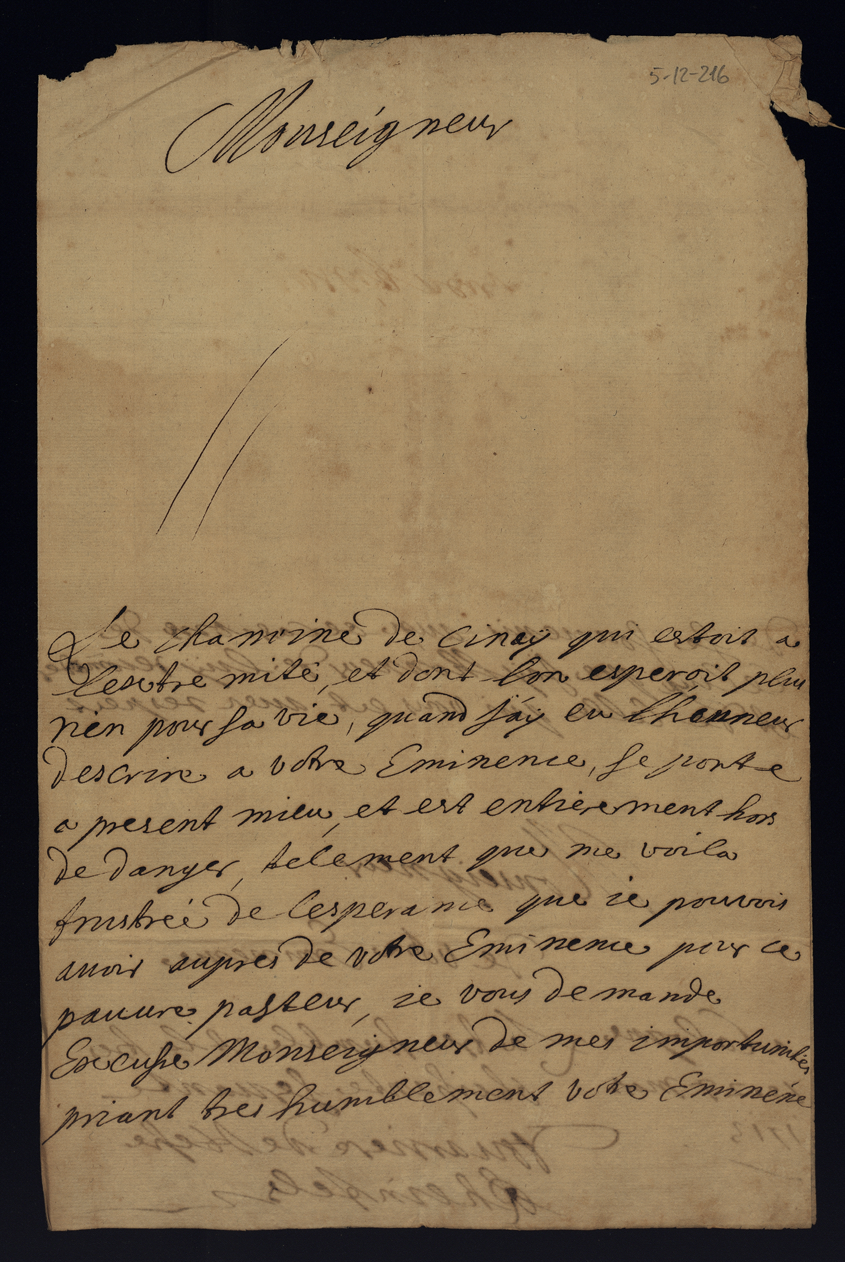 5-12-216
Monseigneur
Le chanoine de Cinay qui estoit a
Lextre mité, et dont lon esperoit plu
rien pour sa vie, quand j'ay eu lhonneur
descrire a votre Eminence, se porte
a present mieu, et est entierement hors
de danger, telement que me voila
frustrée de lesperance que ie pouvois
avoir aupres de votre Eminence pour ce
pauvre pasteur, ie vous demande
Excuse Monseigneur de mes importunités
priant tres humblement votre Eminence